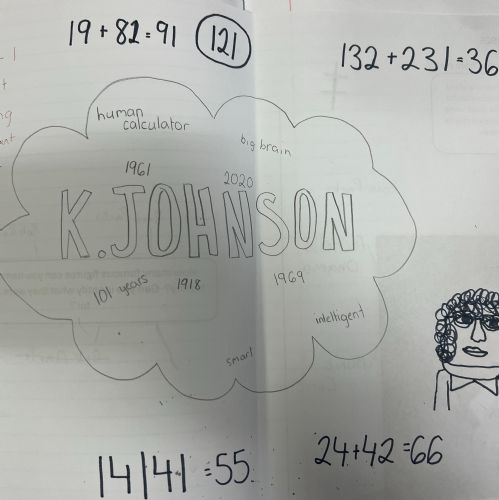 19 + 82 = 91
121
132 + 231 = 36
human
calculator
big brain
1961
2020
K.JOHNSON
101 years
1918
1969
intelligent
smart
14|41 = 55
24+42 = 66